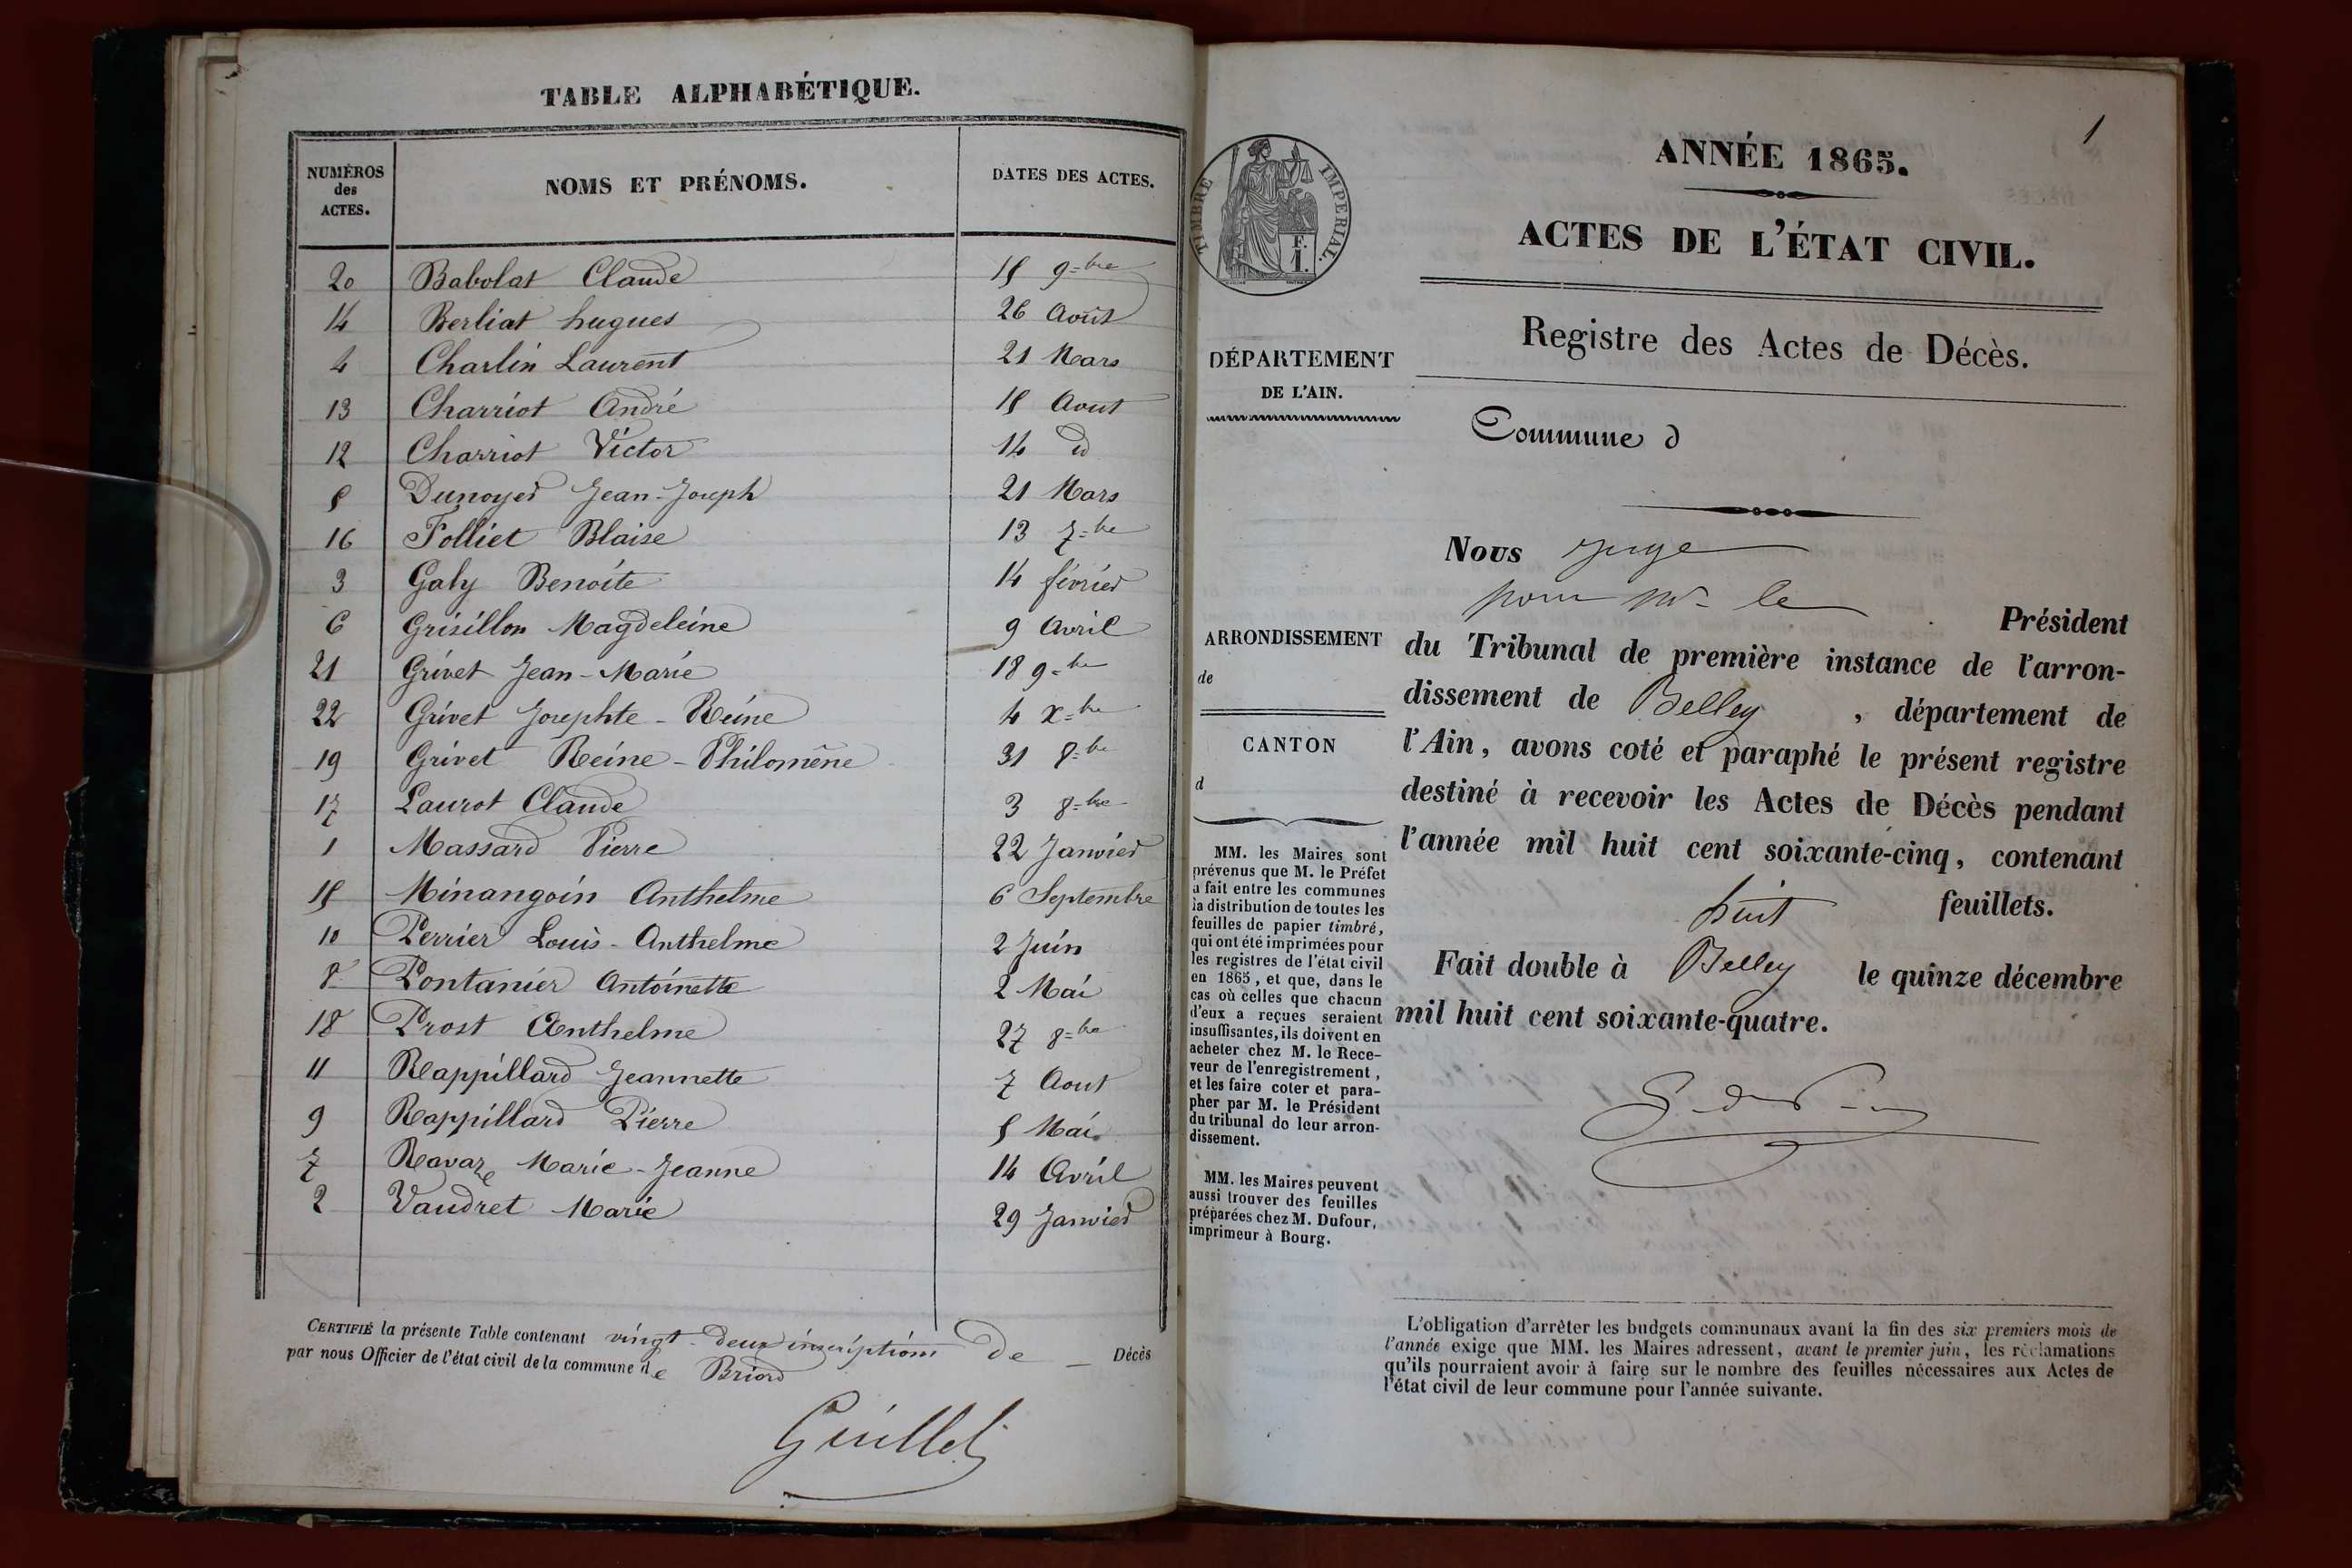 TABLE ALPHABÉTIQUE.
NUMÉROS des ACTES. NOMS ET PRÉNOMS. DATES DES ACTES.
20 Babolat Claude 15 9=bre
14 Berliat hugues 26 Août
4 Charlin Laurent 21 Mars
13 Charriot André 15 Aout
12 Charriot Victor 14 d
5 Dunoyer Jean-Joseph 21 Mars
16 Folliet Blaise 13 7=bre
3 Galy Benoite 14 février
6 Grisillon Magdeleine 9 Avril
21 Grivet Jean-Marie 18 9=bre
22 Grivet Josephte-Reine 4 x=bre
19 Grivet Reine-Philomène 31 8=bre
17 Laurot Claude 3 8=bre
1 Massard Pierre 22 Janvier
15 Minangoin Anthelme 6 Septembre
10 Perrier Louis-Anthelme 2 Juin
8 Pontanier Antoinette 2 Mai
18 Prost Anthelme 27 8=bre
11 Rappillard Jeannette 7 Aout
9 Rappillard Pierre 5 Mai
7 Ravaz Marie-Jeanne 14 Avril
2 Vaudret Marie 29 Janvier
CERTIFIÉ la présente Table contenant vingt-deux inscriptions de Décès
par nous Officier de l'état civil de la commune de Briord
Guillet
1
TIMBRE IMPÉRIAL.
F.
1.
ANNÉE 1865.
ACTES DE L'ÉTAT CIVIL.
Registre des Actes de Décès.
DÉPARTEMENT
DE L'AIN.
Commune d
ARRONDISSEMENT
de
CANTON
d
MM. les Maires sont
prévenus que M. le Préfet
a fait entre les communes
la distribution de toutes les
feuilles de papier timbré,
qui ont été imprimées pour
les registres de l'état civil
en 1865, et que, dans le
cas où celles que chacun
d'eux a reçues seraient
insuffisantes, ils doivent en
acheter chez M. le Rece-
veur de l'enregistrement,
et les faire coter et para-
pher par M. le Président
du tribunal de leur arron-
dissement.
MM. les Maires peuvent
aussi trouver des feuilles
préparées chez M. Dufour,
imprimeur à Bourg.
Nous juge
pour Mr le Président
du Tribunal de première instance de l'arron-
dissement de Belley, département de
l'Ain, avons coté et paraphé le présent registre
destiné à recevoir les Actes de Décès pendant
l'année mil huit cent soixante-cinq, contenant
huit feuillets.
Fait double à Belley le quinze décembre
mil huit cent soixante-quatre.
L'obligation d'arrêter les budgets communaux avant la fin des six premiers mois de
l'année exige que MM. les Maires adressent, avant le premier juin, les réclamations
qu'ils pourraient avoir à faire sur le nombre des feuilles nécessaires aux Actes de
l'état civil de leur commune pour l'année suivante.